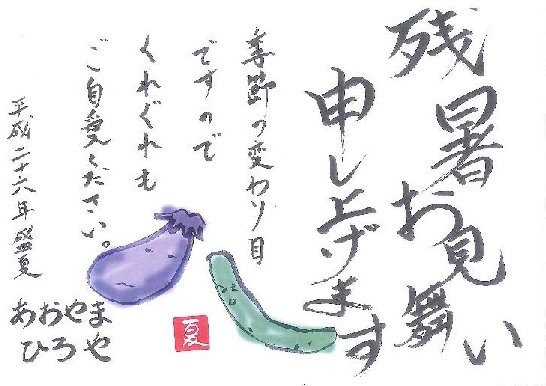 残暑お見舞い
申し上げます
季節の変わり目
ですので
くれぐれも
ご自愛ください。
平成二十六年盛夏
あおやま
ひろや
夏